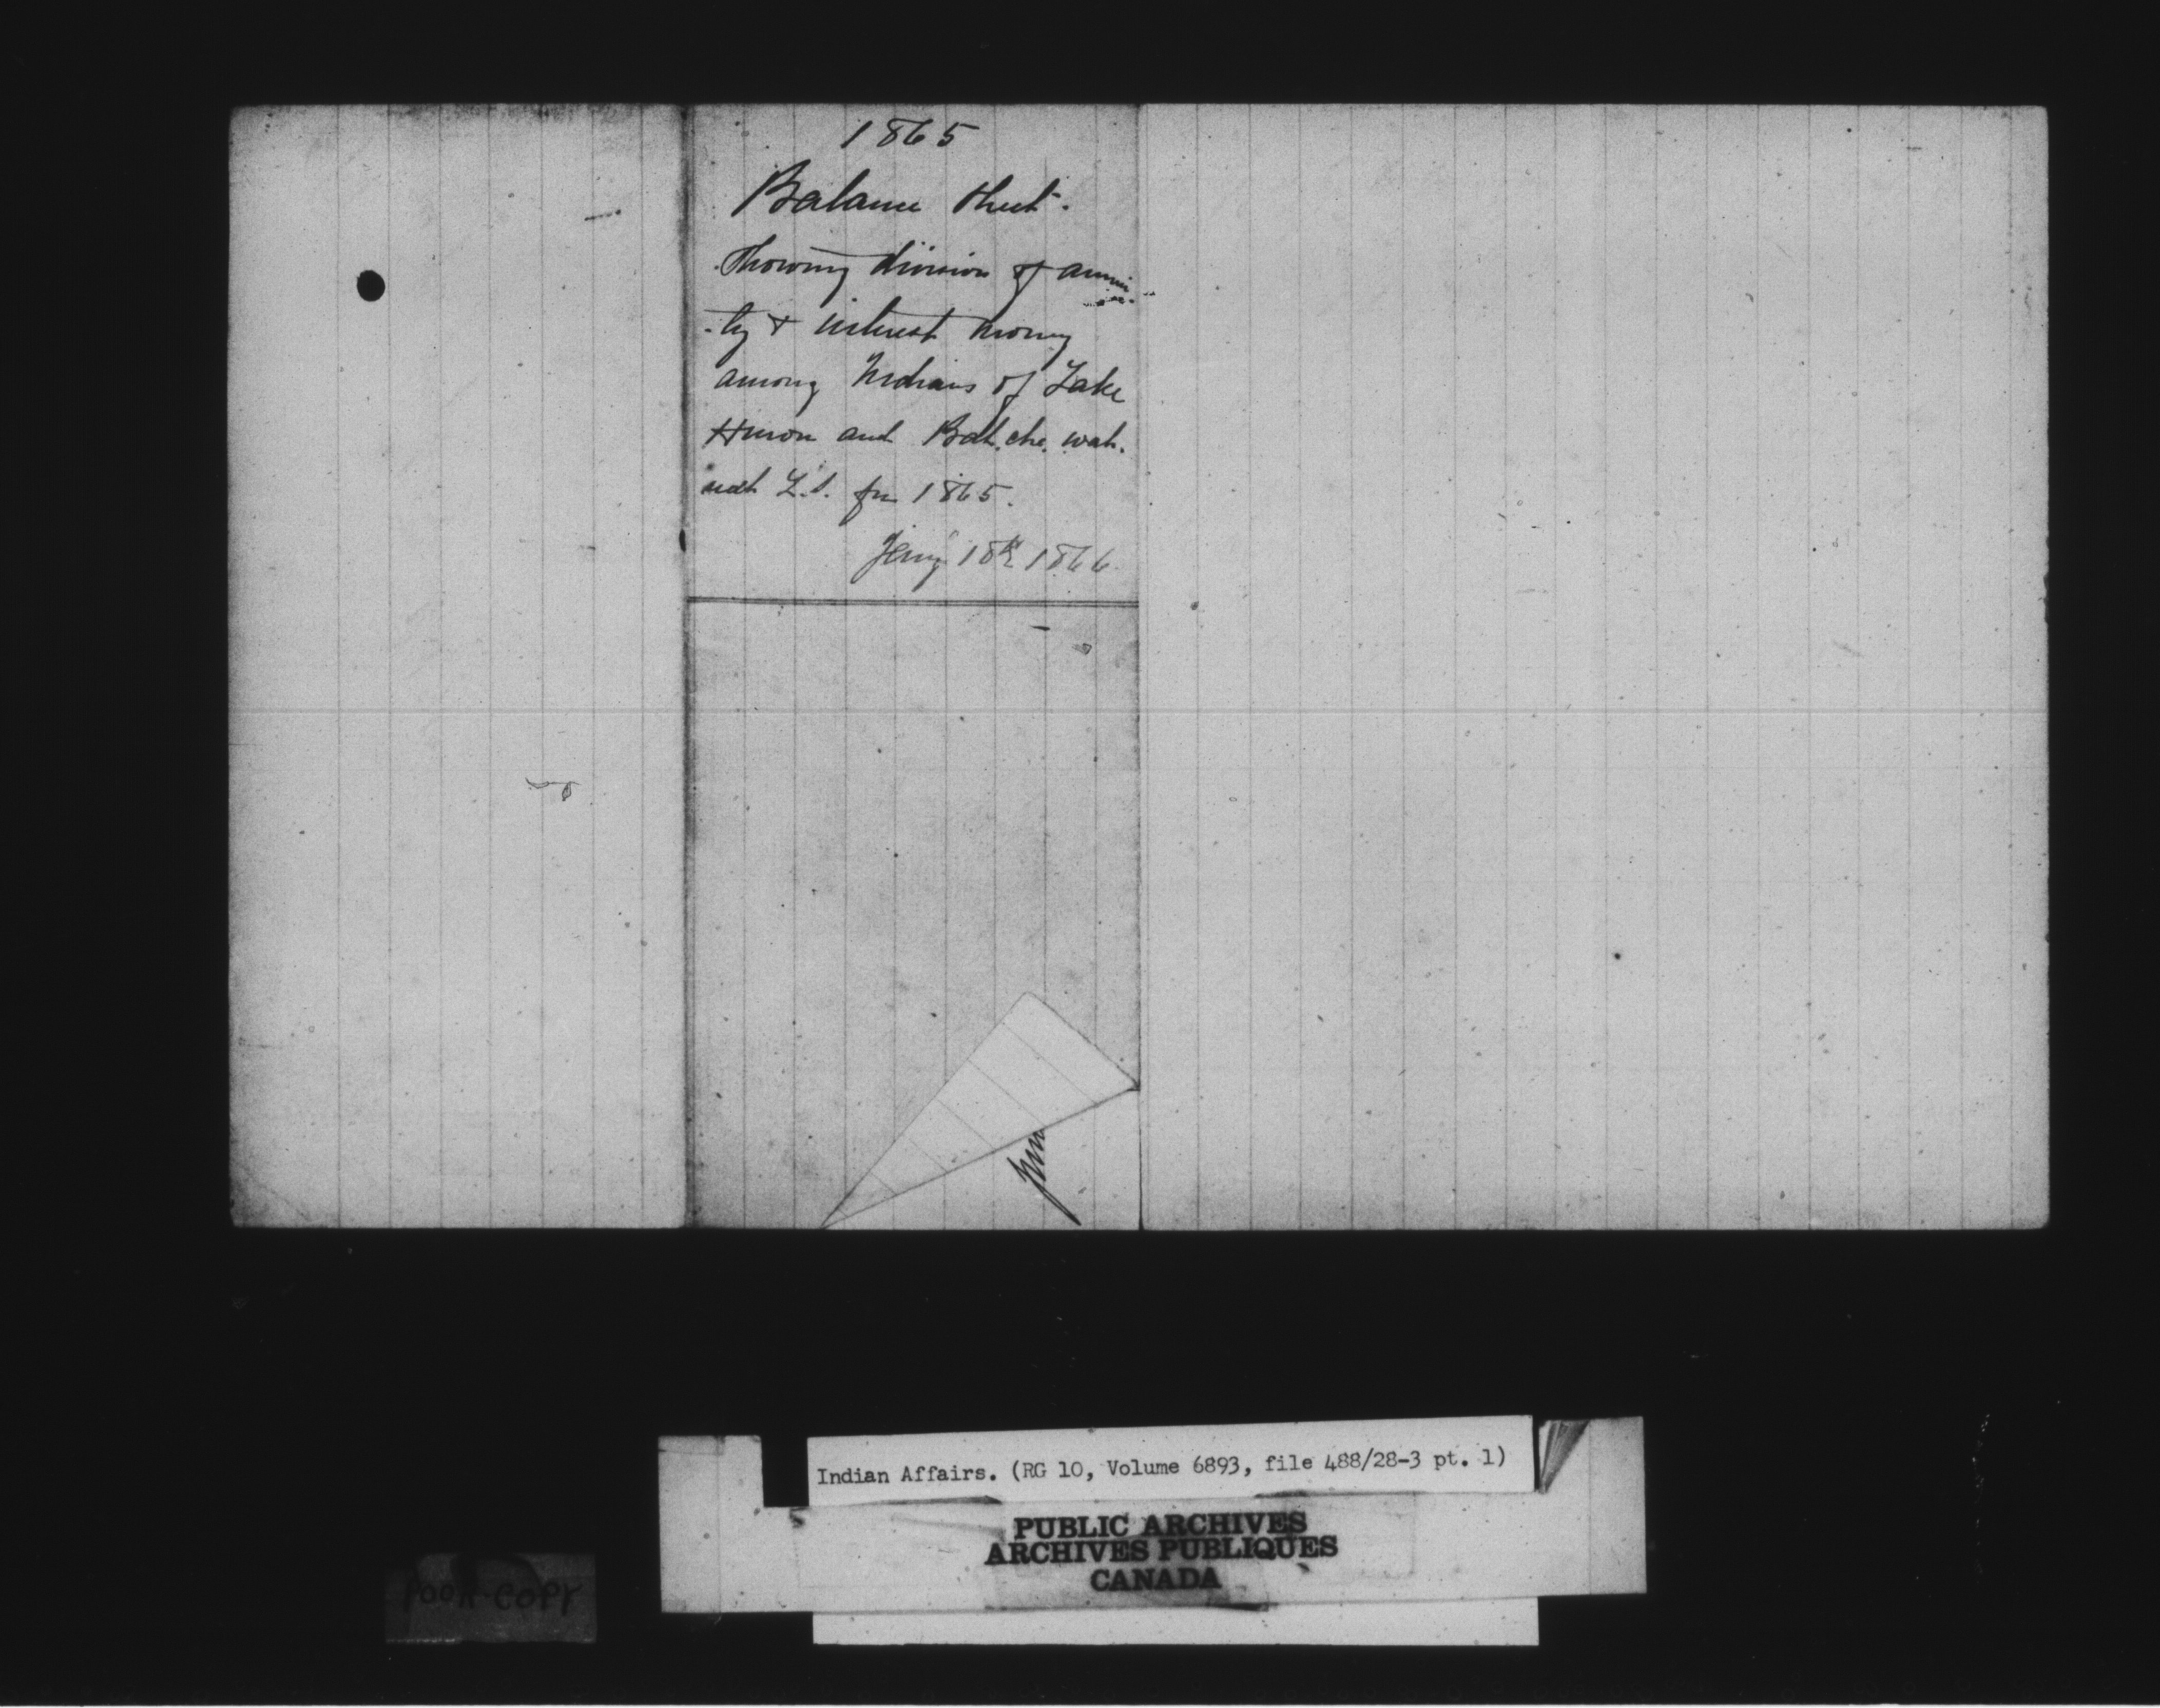 1865
Balance Sheet.
Showing division of annui-
-ty & interest money
among Indians of Lake
Huron and Bat.che.wah.
nah L.S. for 1865.
Jany 18th 1866.
Indian Affairs. (RG 10, Volume 6893, file 488/28-3 pt. 1)
PUBLIC ARCHIVES
ARCHIVES PUBLIQUES
CANADA
POOR COPY